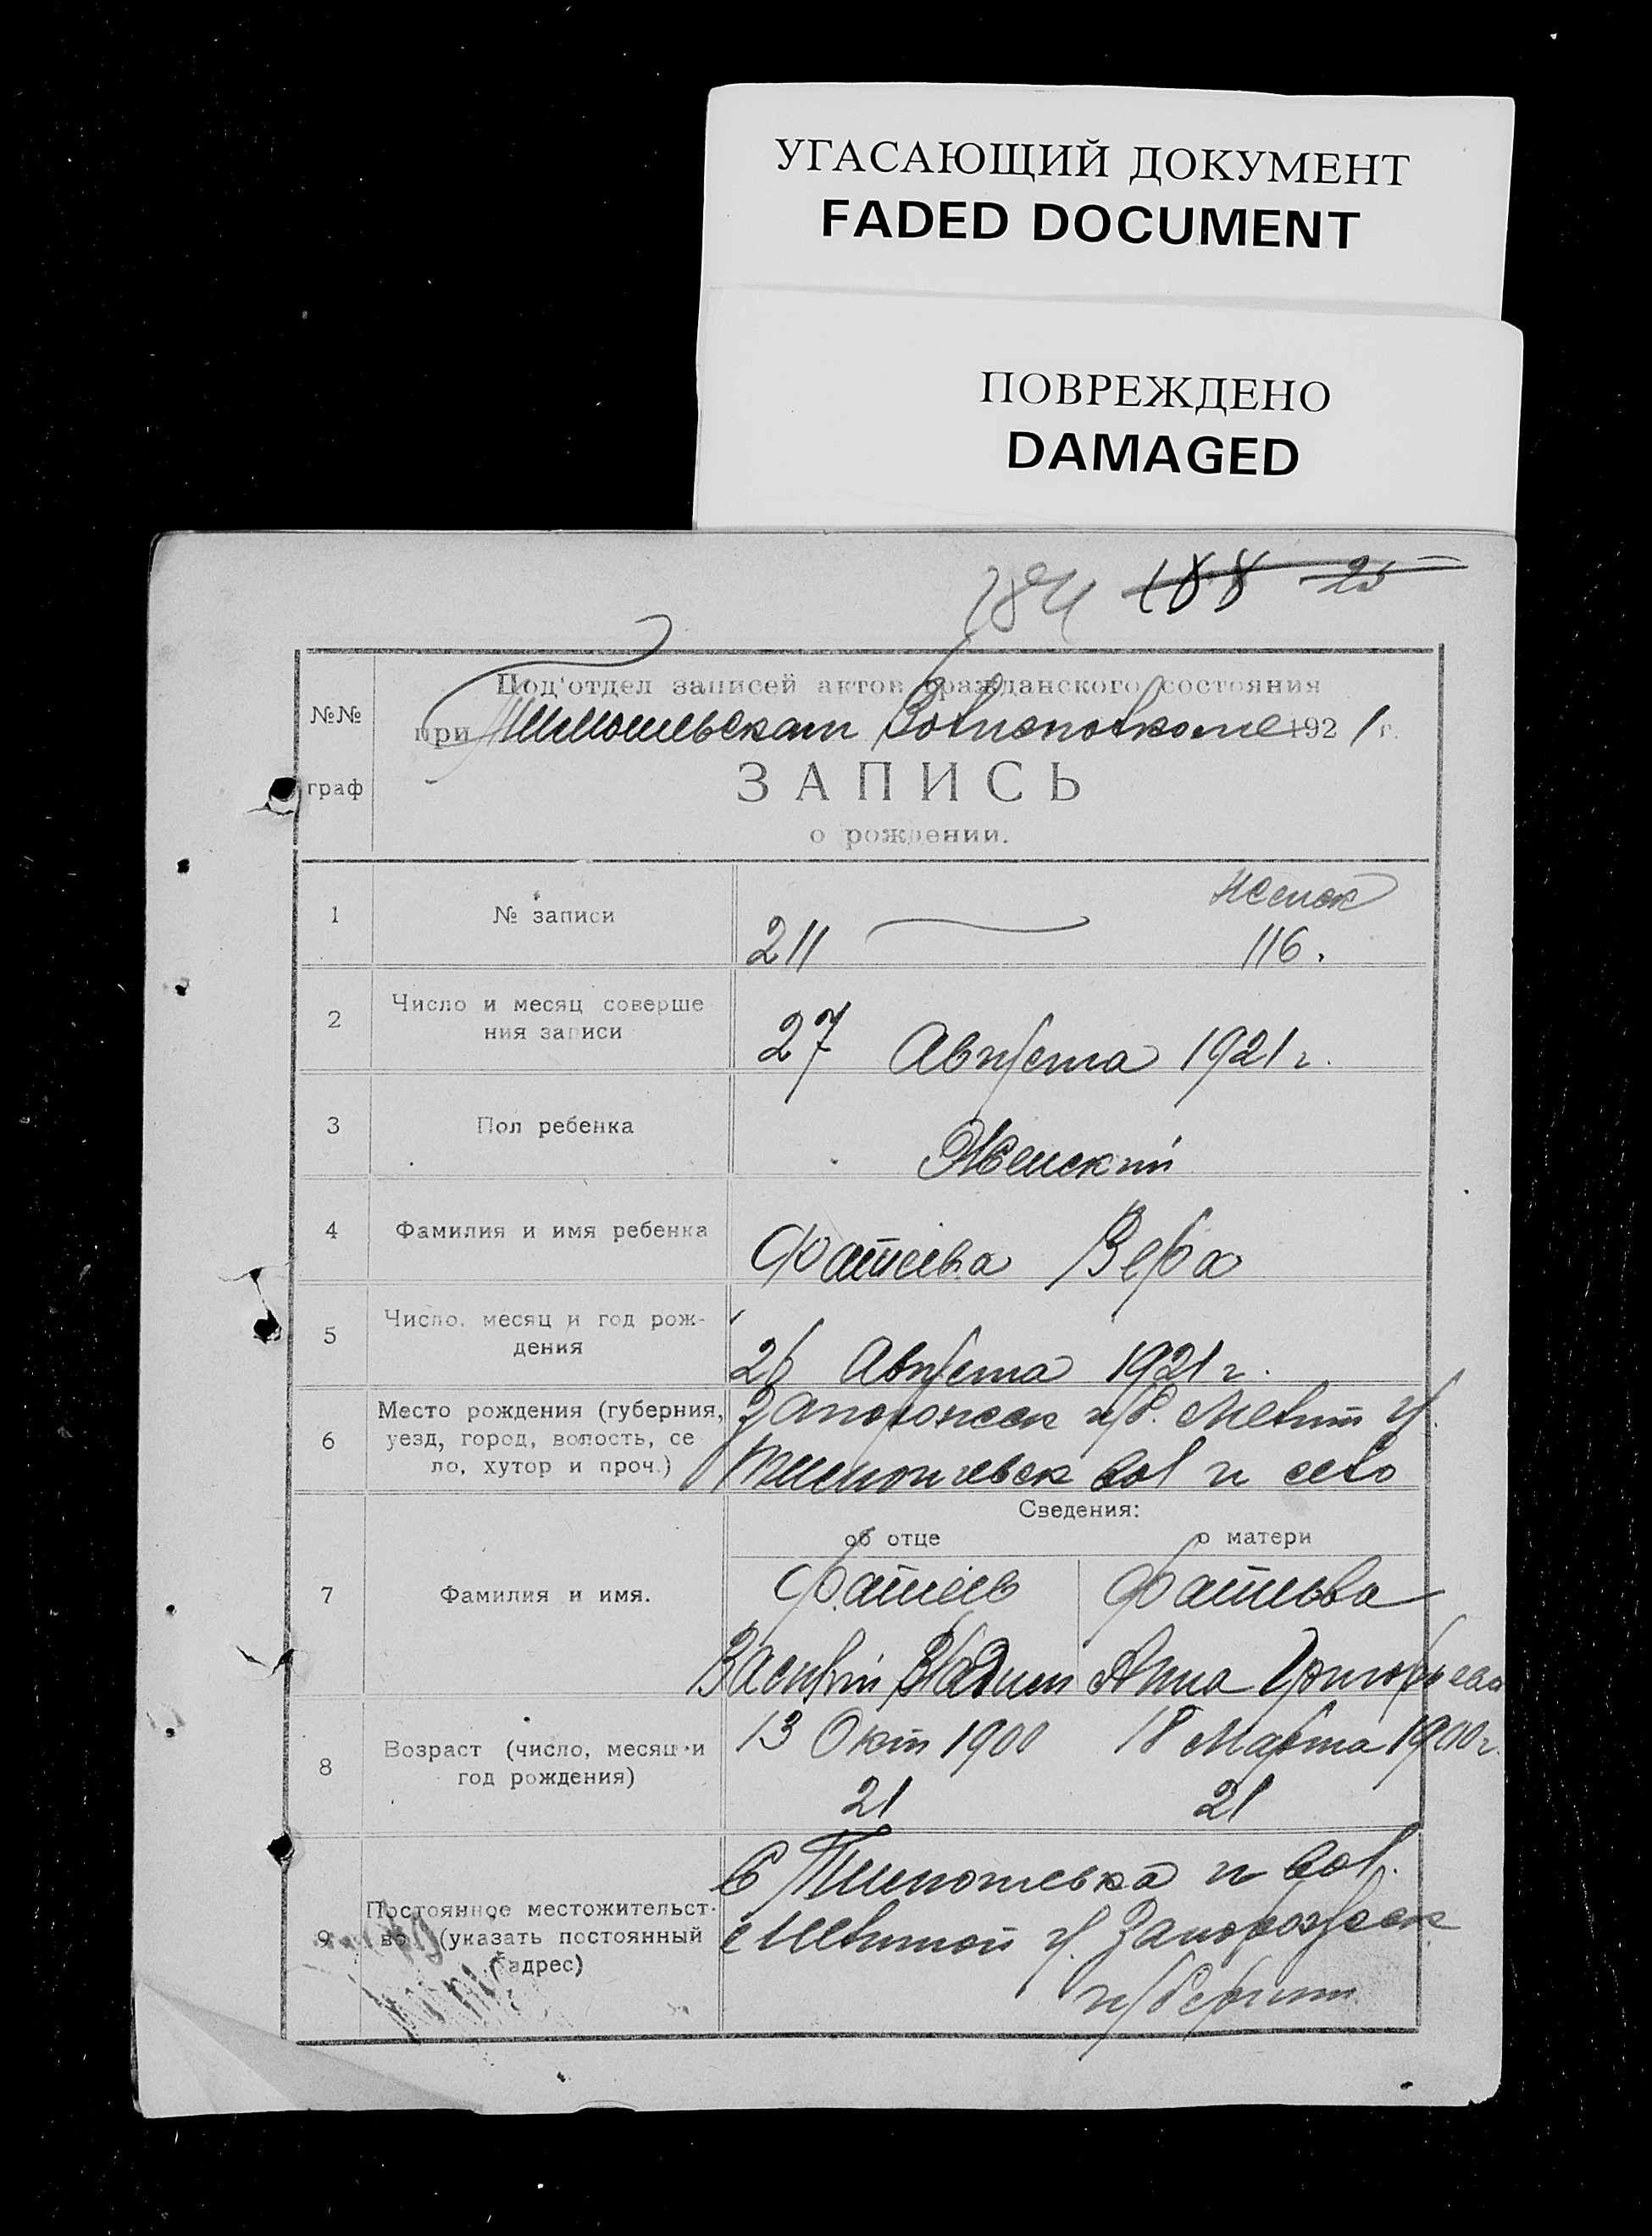 УГАСАЮЩИЙ ДОКУМЕНТ
FADED DOCUMENT
ПОВРЕЖДЕНО
DAMAGED
184 188 25
№№
граф
Под'отдел записей актов гражданского состояния
при Тимошевском Волисполкоме 1921 г.
ЗАПИСЬ
о рождении.
1
№ записи
211
женск
116.
2
Число и месяц соверше
ния записи
27 Августа 1921 г.
3
Пол ребенка
Женский
4
Фамилия и имя ребенка
Фатеева Вера
5
Число, месяц и год рож-
дения
26 Августа 1921 г.
6
Место рождения (губерния,
уезд, город, волость, се
ло, хутор и проч.)
Запорожск губ. Мелит у.
Тимошевск вол и село
Сведения:
об отце
о матери
7
Фамилия и имя.
Фатеев
Фатеева
Василий Владим
Анна Григорьева
8
Возраст (число, месяц и
год рождения)
13 Окт 1900
18 Марта 1900 г.
21
21
9
Постоянное местожительст-
во (указать постоянный
адрес)
С Тимошевка и вол.
Мелитоп у. Запорожск
губернии